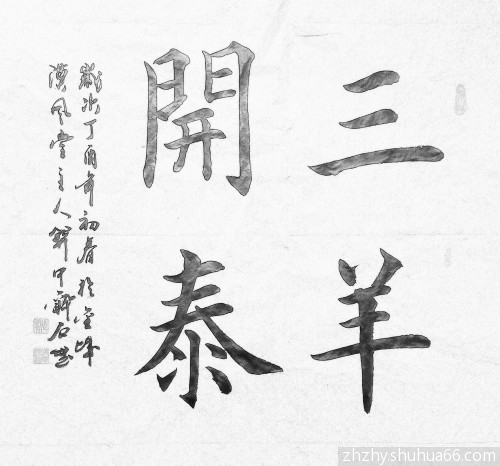 三羊
開泰
歲次丁酉年初春於金峰
漢風堂主人 甲 石書
zhzhyshuhua66.com